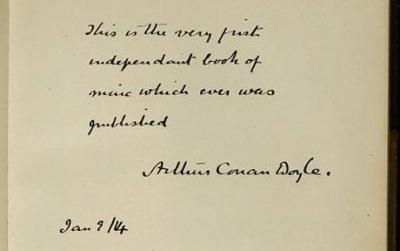 This is the very first
independant book of
mine which ever was
published
Arthur Conan Doyle.
Jan 9/14